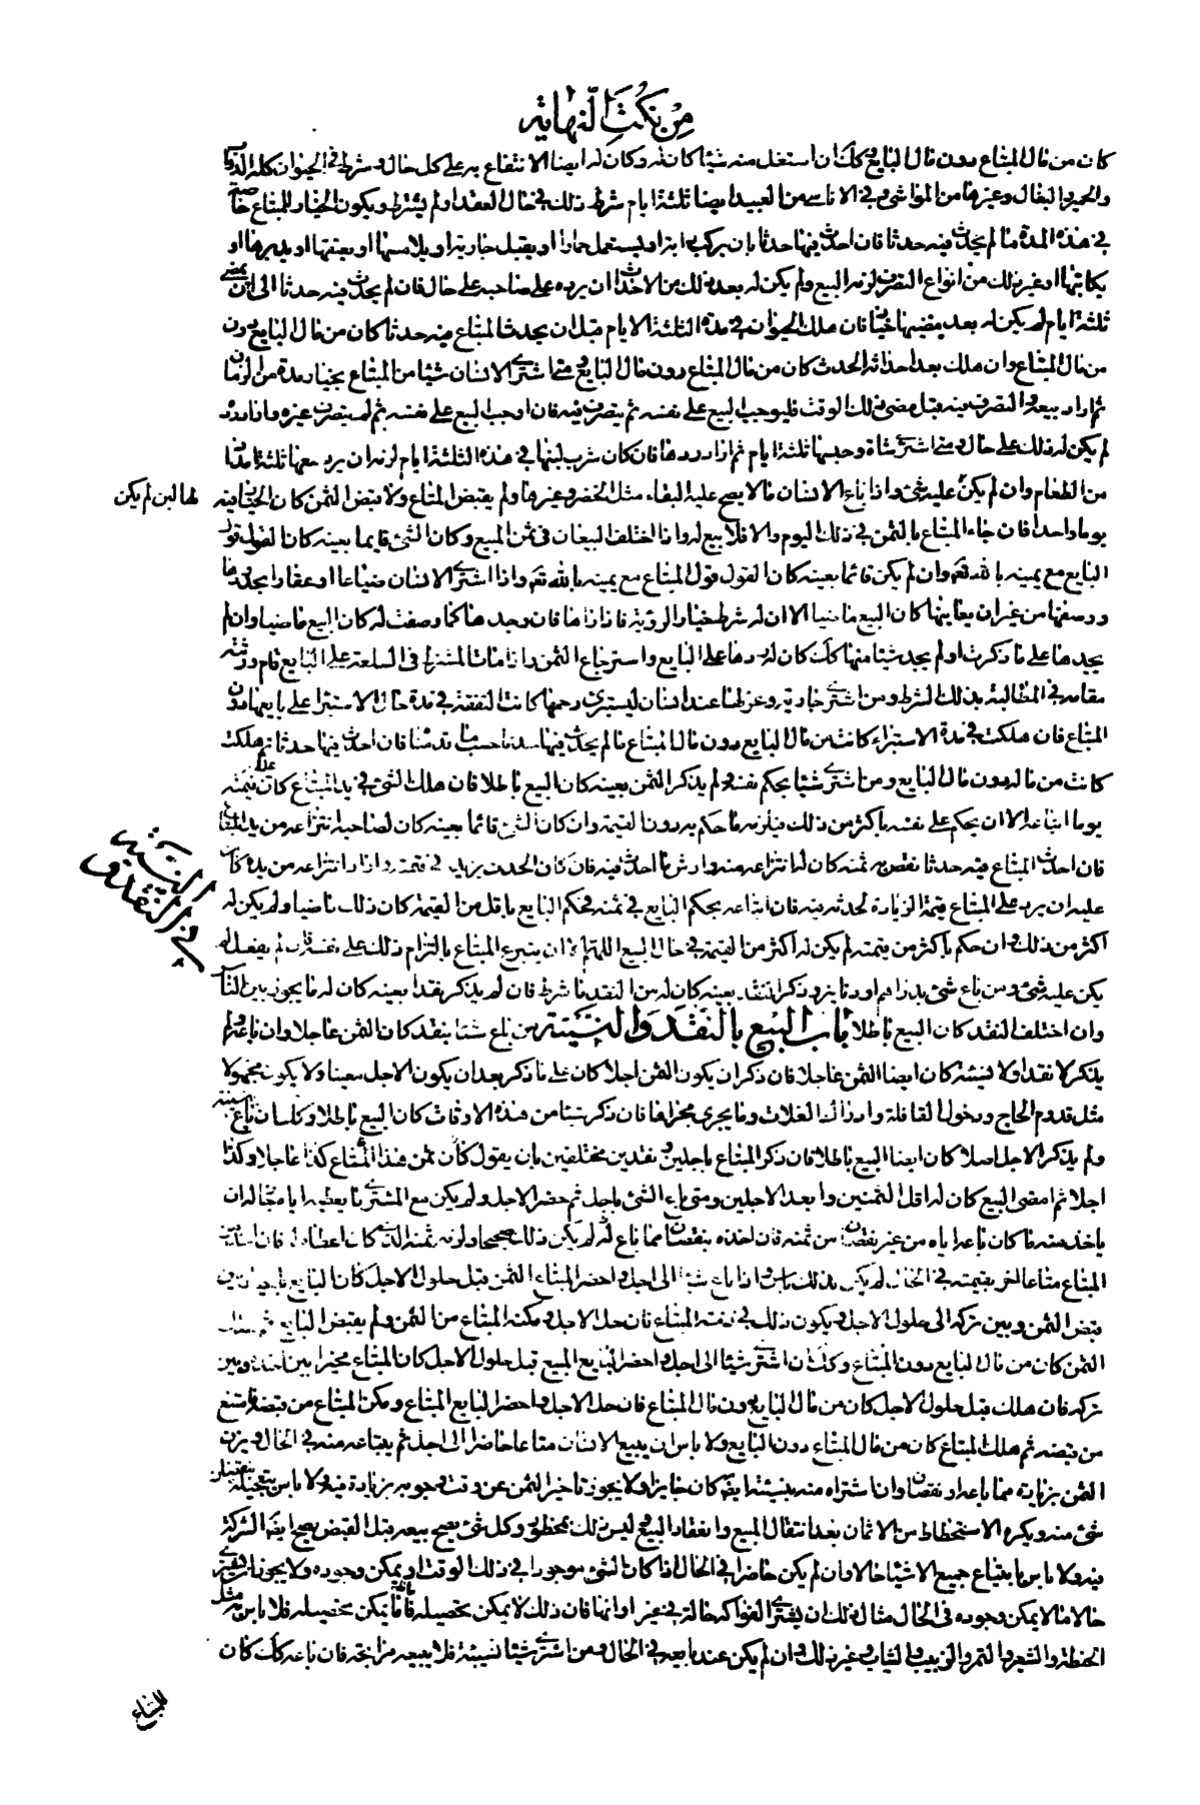 من نكت النهاية
كان من مال المبتاع دون مال البايع وكك ان استغل منه شيئا كان له وكان له ايضا الانتفاع به على كل حال وشرط في الحيوان كله الدواب
والحمير والبغال وغيرها من المواشي وفي الاناسي من العبيد ايضا ثلثة ايام شرط ذلك في حال العقد او لم يشترط ويكون الخيار للمبتاع خاصة
في هذه المدة ما لم يحدث فيه حدثا فان احدث فيها حدثا بان يركب دابة او يستعمل حمارا او يقبل جارية او يلامسها او يعتقها او يدبرها او
يكاتبها او غير ذلك من انواع التصرف لزمه البيع ولم يكن له بعد ذلك من الاحداث ان يرده على صاحبه على حال فان لم يحدث فيه حدثا الى ان يمضي
ثلثة ايام لم يكن له بعد مضيها خيار فان هلك الحيوان في مدة الثلثة الايام قبل ان يحدث المبتاع فيه حدثا كان من مال البايع دون
من مال المبتاع وان هلك بعد احداثه الحدث كان من مال المبتاع دون مال البايع ومتى اشترى الانسان شيئا من المبتاع بخيار مدة من الزمان
ثم اراد بيعه والتصرف فيه قبل مضي ذلك الوقت فليوجب البيع على نفسه ثم يتصرف فيه فان اوجب البيع على نفسه ثم لم يتصرف غيره واراد رده
لم يكن له ذلك على حال ومتى اشترى شاة وحبسها ثلثة ايام ثم اراد ردها فان كان شرب لبنها في هذه الثلثة ايام لزمه ان يرد معها ثلثة امداد
من الطعام وان لم يكن عليه شئ واذا باع الانسان ما لا يصح عليه البقاء مثل الخضر وغيرها ولم يقبض المبتاع ولا قبض الثمن كان الخيار فيه
لها لبن لم يكن
يوما واحدا فان جاء المبتاع بالثمن في ذلك اليوم والا فلا بيع له واذا اختلف البيعان في ثمن المبيع وكان الشئ قايما بعينه كان القول قول
البايع مع يمينه بالله تعم وان لم يكن قائما بعينه كان القول قول المبتاع مع يمينه بالله تعم واذا اشترى الانسان ضياعا او عقارا بحدودها
ووصفها من غير ان يعاينها كان البيع ماضيا الا ان له شرط خيار الرؤية فاذا راها فان وجدها كما وصفت له كان البيع ماضيا وان لم
يجدها على ما ذكرت او لم يجد شيئا منها كك كان له ردها على البايع واسترجاع الثمن واذا مات المشترط في السلعة على البايع قام ورثته
مقامه في المطالبة بذلك الشرط ومن اشترى جارية وعزلها عند انسان ليستبرئ رحمها كانت النفقة في مدة حال الاستبراء على بايعها دون
المبتاع فان هلكت في مدة الاستبراء كانت من مال البايع دون مال المبتاع ما لم يحدث فيها حدثا حسب ما قدمنا فان احدث فيها حدثا ثم هلكت
كانت من ماله دون مال البايع ومن اشترى شيئا بحكم نفسه ولم يذكر الثمن بعينه كان البيع باطلا فان هلك الشئ في يد المبتاع كان عليه قيمته
يوم ابتاعه الا ان يحكم على نفسه باكثر من ذلك فيلزمه ما حكم به دون القيمة وان كان الشئ قائما بعينه كان لصاحبه انتزاعه من يد المبتاع
فان احدث المبتاع فيه حدثا نقص به ثمنه كان له انتزاعه منه وارش ما احدث فيه فان كان الحدث يزيد في قيمته واراد انتزاعه من يده كان
في النقد والنسيئة
عليه ان يرد على المبتاع قيمة الزيادة لحدثه فيه فان ابتاعه بحكم البايع في ثمنه فحكم البايع باقل من القيمة كان ذلك ماضيا ولم يكن له
اكثر من ذلك وان حكم باكثر من قيمته لم يكن له اكثر من القيمة في حال البيع اللهم الا ان يتبرع المبتاع بالتزام ذلك على نفسه فان لم يفعل لم
يكن عليه شئ ومن باع شئ بدراهم او دنانير وذكر النقد بعينه كان له من النقد ما شرط فان لم يذكر نقدا بعينه كان له ما يجوز بين الناس
وان اختلف النقد كان البيع باطلا باب البيع بالنقد والنسيئة من باع شيئا بنقد كان الثمن عاجلا وان باع ولم
يذكر لا نقدا ولا نسيئة كان ايضا الثمن عاجلا فان ذكر ان يكون الثمن اجلا كان على ما ذكر بعد ان يكون الاجل معينا ولا يكون مجهولا
مثل قدوم الحاج ودخول القافلة وادراك الغلات وما يجري مجراها فان ذكر شيئا من هذه الاوقات كان البيع باطلا وكك ان باع بنسيئة
ولم يذكر الاجل اصلا كان ايضا البيع باطلا فان ذكر المبتاع باجلين ونقدين مختلفين بان يقول كان ثمن هذا المتاع كذا عاجلا وكذا
اجلا ثم امضى البيع كان له اقل الثمنين وابعد الاجلين ومتى باع الشئ باجل ثم حضر الاجل ولم يكن مع المشتري ما يعطيه اياه جاز له ان
ياخذ منه ما كان باعه اياه من غير نقصان من ثمنه فان اخذه بنقصان مما باع له لم يكن ذلك صحيحا ولزمه ثمنه الذي كان اعطاه فان
المبتاع متاعا اخر بقيمته في الحال لم يكن بذلك باس واذا باع شيئا الى اجل واحضر المبتاع الثمن قبل حلول الاجل كان البايع بالخيار بين
قبض الثمن وبين تركه الى حلول الاجل ويكون ذلك في ذمة المبتاع فان حل الاجل ومكنه المبتاع من الثمن ولم يقبض البايع ثم هلك
الثمن كان من مال البايع دون المبتاع وكك ان اشترى شيئا الى اجل واحضر البايع المبيع قبل حلول الاجل كان المبتاع مخيرا بين اخذه وبين
تركه فان هلك قبل حلول الاجل كان من مال البايع دون مال المبتاع فان حل الاجل واحضر البايع المبتاع ومكن المبتاع من قبضه فامتنع
من قبضه ثم هلك المبتاع كان من مال المبتاع دون البايع ولا باس ان يبيع الانسان متاعا حاضرا الى اجل ثم يبتاعه منه في الحال ويزن
الثمن بزيادة مما باعه او نقصان وان اشتراه منه بنسيئة ايضا كان جايزا ولا يجوز تاخير الثمن عن وقت وجوبه بزيادة فيه ولا باس بتعجيله بنقصان
شئ منه ويكره الاستحطاط من الاثمان بعد انتقال المبيع وانعقاد البيع وليس ذلك بمحظور وكل شئ يصح بيعه قبل القبض يصح ايضا الشركة
فيه ولا باس بابتياع جميع الاشياء حالا وان لم يكن حاضرا في الحال اذا كان الشئ موجودا في ذلك الوقت او يمكن وجوده ولا يجوز ان يشتري
حالا ما لا يمكن وجوده في الحال مثال ذلك ان يشتري الفواكه حالة في غير اوانها فان ذلك لا يمكن تحصيله فاما ما يمكن تحصيله فلا باس به مثل
الحنطة والشعير والتمر والزبيب والثياب وغير ذلك وان لم يكن عند بايعه في الحال ومن اشترى شيئا نسيئة فلا يبيعه مرابحة فان باعه كك كان
للمبتاع